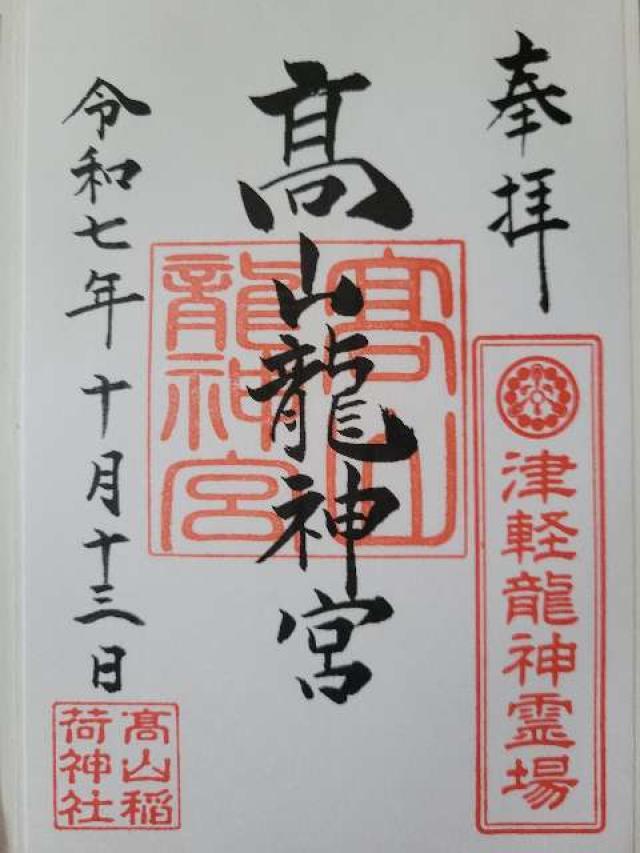 奉拝
津軽龍神霊場
髙山龍神宮
髙山
龍神宮
令和七年十月十三日
髙山稲
荷神社